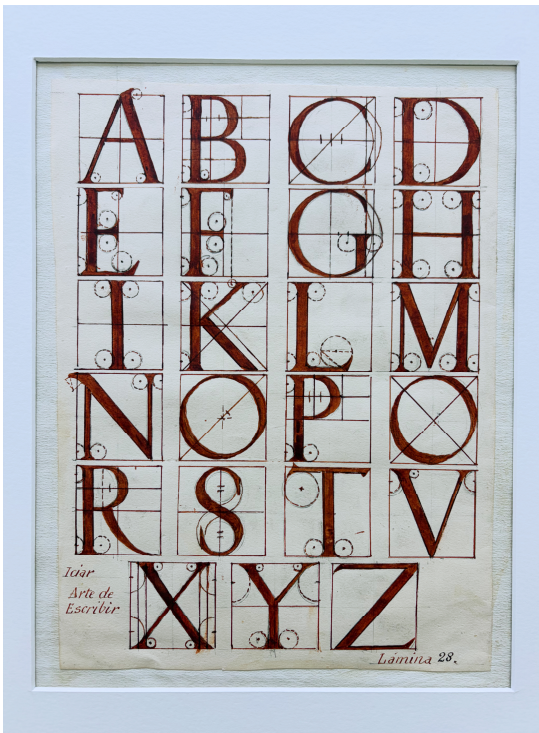 A B C D
E F G H
I K L M
N O P O
R S T V
Iciar
Arte de
Escribir
X Y Z
Lámina 28.